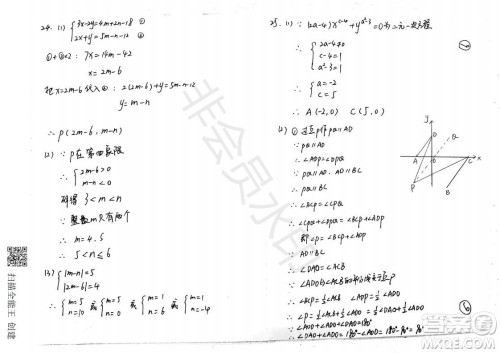 24. (1) {3x-2y=4m+2n-18 ①
2x+y=5m-n-12 ②
①+②×2: 7x=14m-42
x=2m-6
把x=2m-6代入②: 2(2m-6)+y=5m-n-12
y=m-n
∴P(2m-6, m-n)
(2) ∵P在第四象限
∴{2m-6>0
m-n<0
解得 3<m<n
∵整数m只有两个
∴m=4,5
∴5<n≤6
(3) {|m-n|=5
|2m-6|=4
∴{m=5 n=10 或{m=5 n=0 或{m=1 n=6 或{m=1 n=-4
25. (1) ∵(2a-4)x^{c-4}+y^{a²-3}=0为二元一次方程
∴{2a-4≠0
c-4=1
a²-3=1
∴{a=-2
c=5
∴A(-2,0) C(5,0)
(2) ①过点P作PQ∥AD
∵PQ∥AD
∴∠ADP=∠DPQ
∵PQ∥AD, AD∥BC
∴PQ∥BC
∴∠BCP=∠CPQ
∴∠CPQ+∠DPQ=∠BCP+∠ADP
即∠P=∠BCP+∠ADP
∵AD∥BC
∴∠DAO=∠ACB
∴∠BCP=½∠ACB ∠ADP=½∠ADO
∴∠P=½∠ACB+½∠ADO=½∠DAO+½∠ADO
∵∠ADO+∠AOD+∠DAO=180°
y
D
Q
A
O
C
x
P
B
扫描全能王 创建
非会员水印